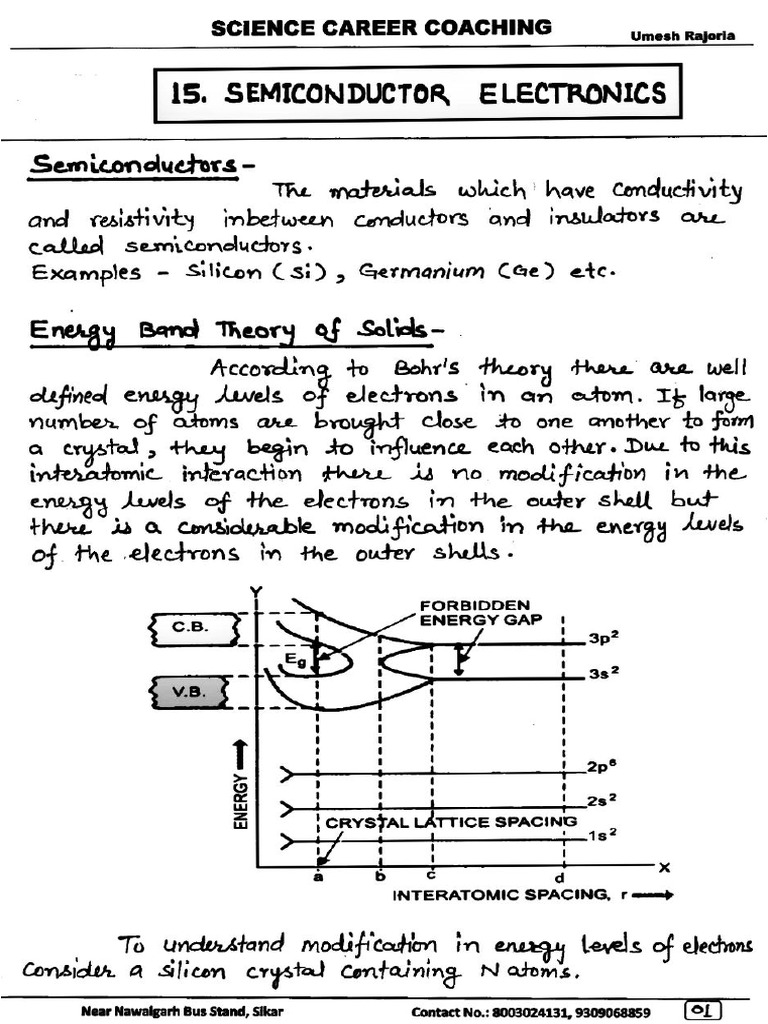 SCIENCE CAREER COACHING
Umesh Rajoria
15. SEMICONDUCTOR ELECTRONICS
Semiconductors-
The materials which have conductivity
and resistivity inbetween conductors and insulators are
called semiconductors.
Examples - Silicon (Si), Germanium (Ge) etc.
Energy Band Theory of Solids-
According to Bohr's theory there are well
defined energy levels of electrons in an atom. If large
number of atoms are brought close to one another to form
a crystal, they begin to influence each other. Due to this
interatomic interaction there is no modification in the
energy levels of the electrons in the outer shell but
there is a considerable modification in the energy levels
of the electrons in the outer shells.
Y
FORBIDDEN
ENERGY GAP
C.B.
3p²
Eg
3s²
V.B.
ENERGY
2p⁶
2s²
CRYSTAL LATTICE SPACING
1s²
X
a b c d
INTERATOMIC SPACING, r
To understand modification in energy levels of electrons
consider a silicon crystal containing N atoms.
Near Nawalgarh Bus Stand, Sikar Contact No.: 8003024131, 9309068859 01